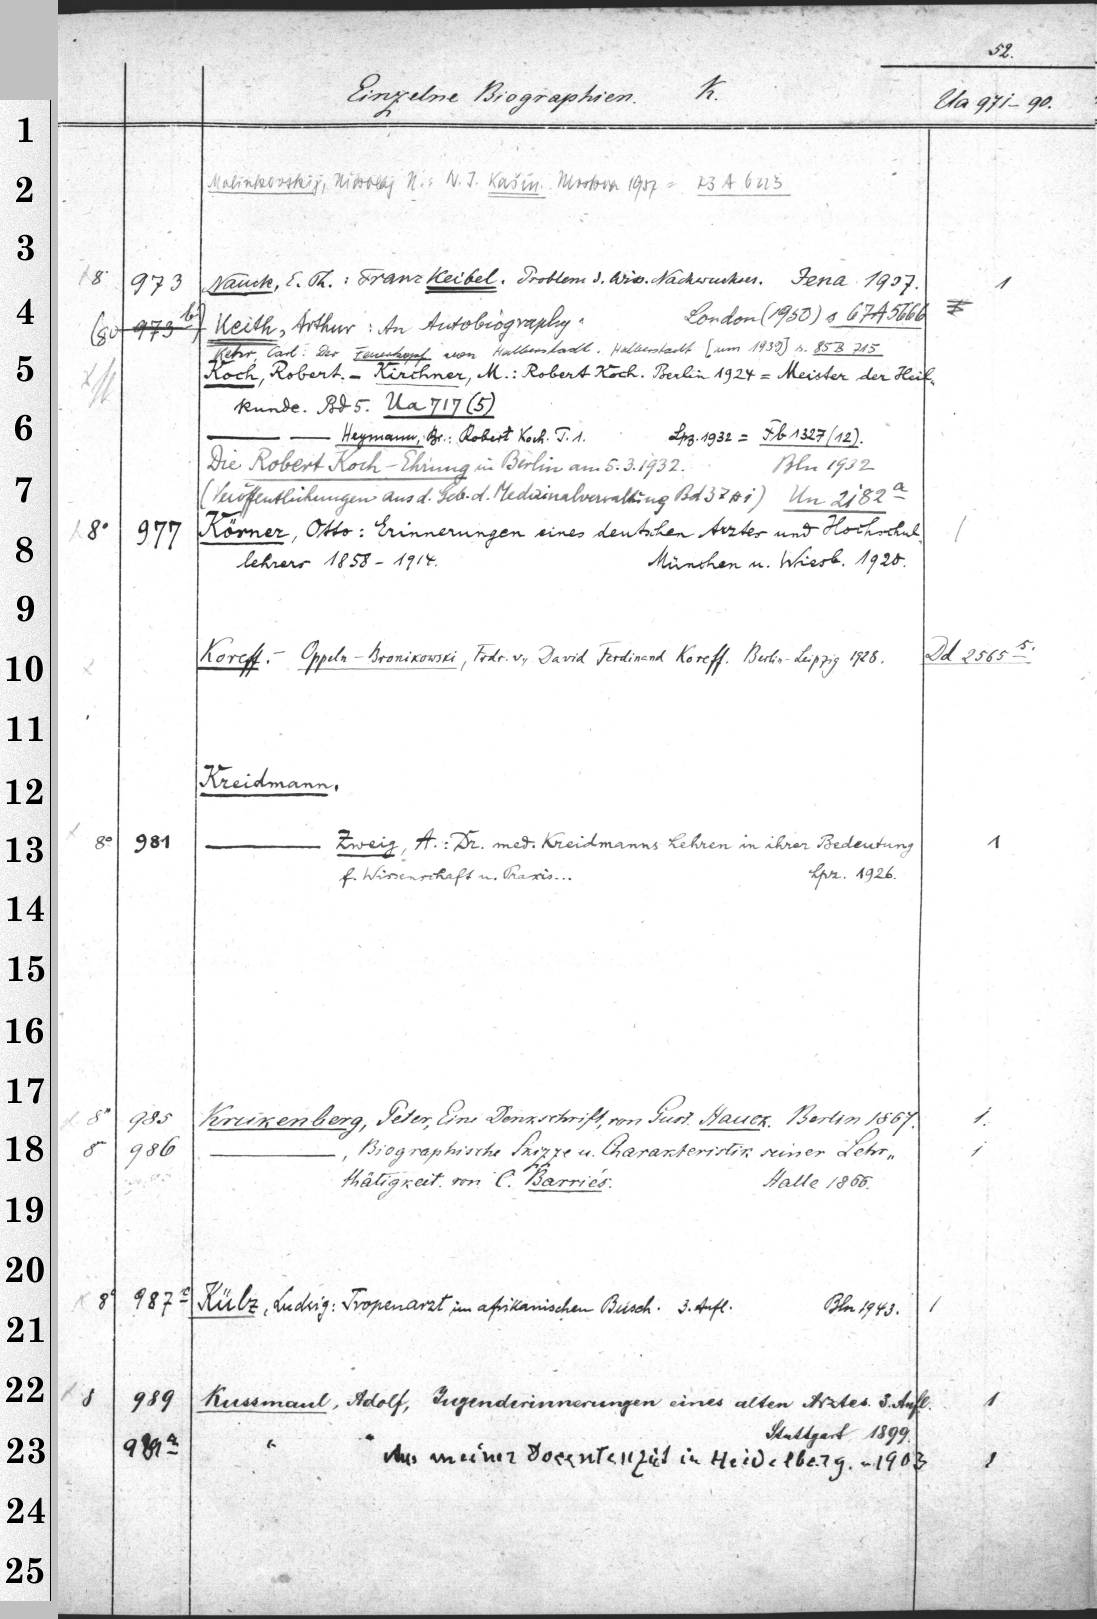 52.
Einzelne Biographien. K. Ua 971-90.
1
2 Malinkovskij, Nikolaj N.: N. I. Kašin. Moskva 1957 = 73 A 6213
3
8 973 Nauck, E. Th.: Franz Keibel. Problem d. wiss. Nachwuchses. Jena 1937. 1
4 (8° 973 b) Keith, Arthur: An Autobiography. London (1950) s 67A5666
Kehr, Carl: Der Feuerkopf von Halberstadt. Halberstadt [um 1939] s. 85 B 715
5 Koch, Robert. - Kirchner, M.: Robert Koch. Berlin 1924 = Meister der Heil-
kunde. Bd 5. Ua 717 (5)
6 Heymann, Br.: Robert Koch. T. 1. Lpz. 1932 = Fb 1327 (12).
Die Robert Koch-Ehrung in Berlin am 5.3.1932. Bln 1932
7 (Veröffentlichungen aus d. Geb. d. Medizinalverwaltung Bd 37 H 1) Un 2182 a
8° 977 Körner, Otto: Erinnerungen eines deutschen Arztes und Hochschul- 1
8 lehrers 1858-1914. München u. Wiesb. 1920.
9
10 Koreff. - Oppeln-Bronikowski, Frdr. v., David Ferdinand Koreff. Berlin-Leipzig 1928. Dd 2565 5.
11
12 Kreidmann.
13 8° 981 Zweig, A.: Dr. med. Kreidmanns Lehren in ihrer Bedeutung 1
f. Wissenschaft u. Praxis... Lpz. 1926.
14
15
16
17
8° 985 Krukenberg, Peter, Eine Denkschrift, von Gust. Hauck. Berlin 1867. 1.
18 8° 986 , Biographische Skizze u. Charakteristik seiner Lehr„ 1
thätigkeit. von C. Barriés. Halle 1866.
19
20
8° 987 a Külz, Ludwig: Tropenarzt im afrikanischen Busch. 3. Aufl. Bln 1943. 1
21
22 8 989 Kussmaul, Adolf, Jugenderinnerungen eines alten Arztes. 3. Aufl. 1
Stuttgart 1899.
23 989 a " " Aus meiner Docentenzeit in Heidelberg. 1903 1
24
25